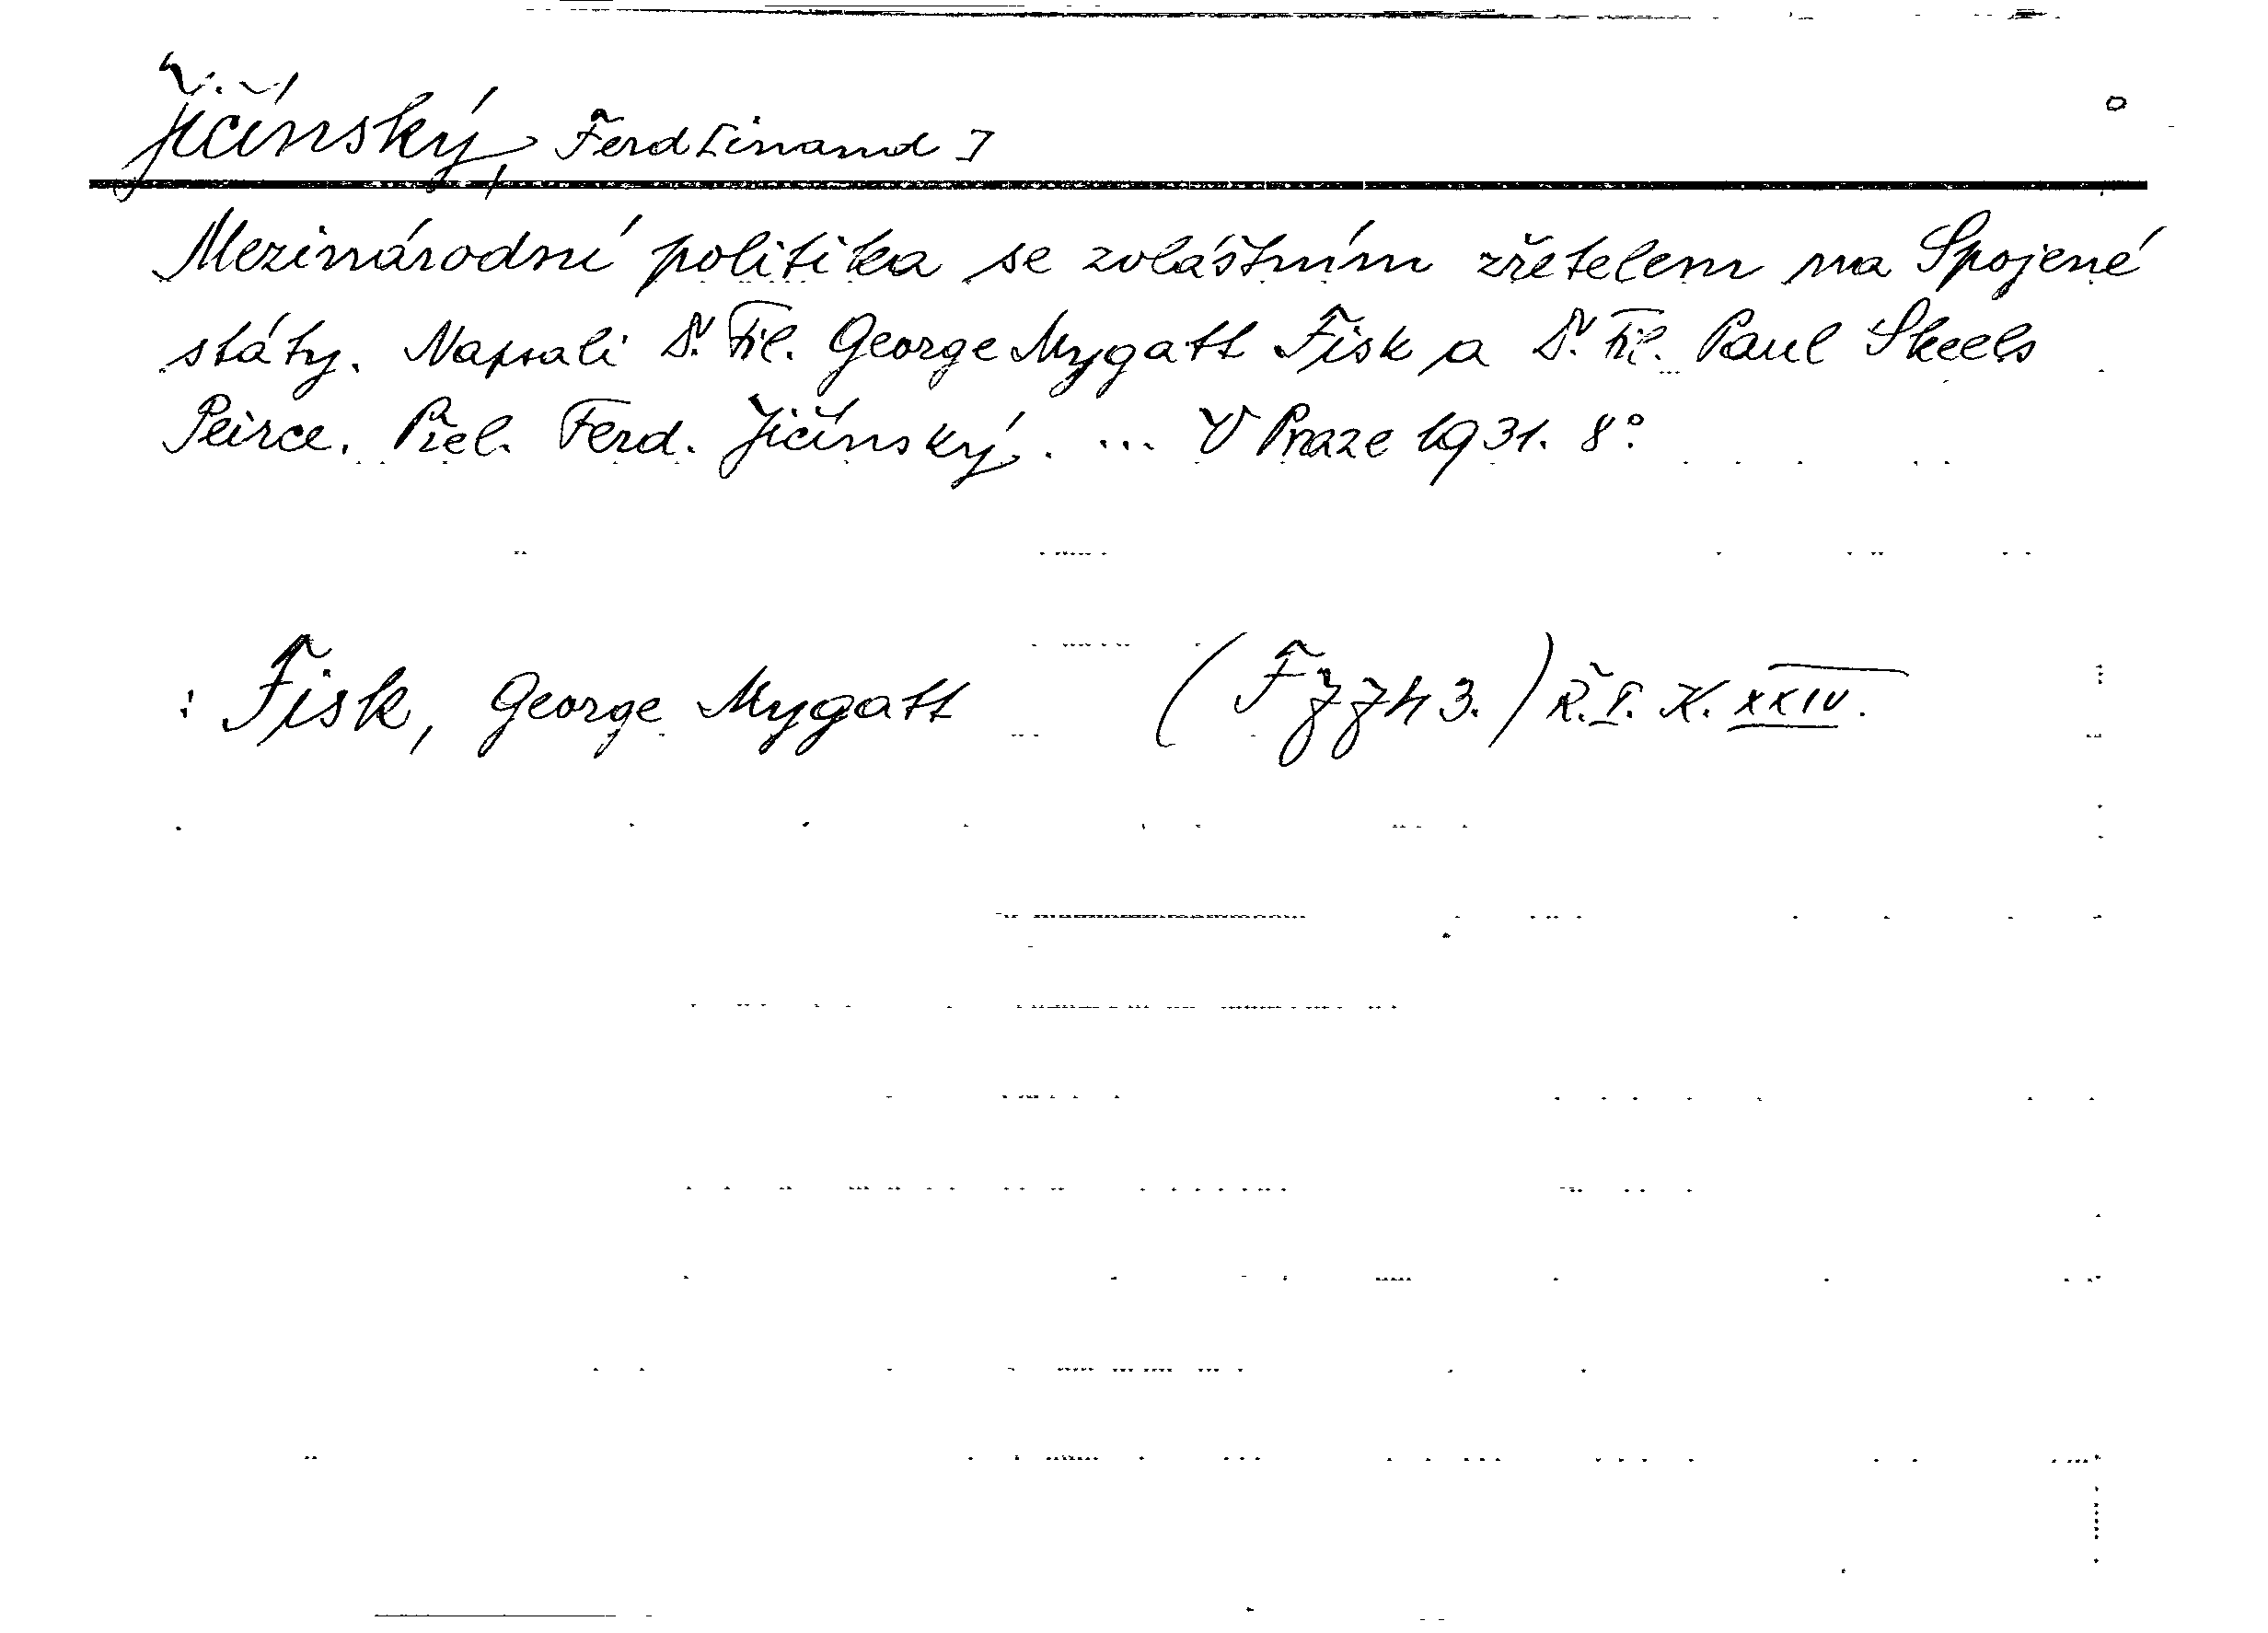 Jičínský, Ferd[inand]
Mezinárodní politika se zvláštním zřetelem na Spojené
státy. Napsali D. Fil. George Mygatt Fisk a D. Fil. Paul Skeels
Peirce. Přel. Ferd. Jičínský. ... V Praze 1931. 8°.
: Fisk, George Mygatt ( F 3.) Ř. I. K. XXIV.